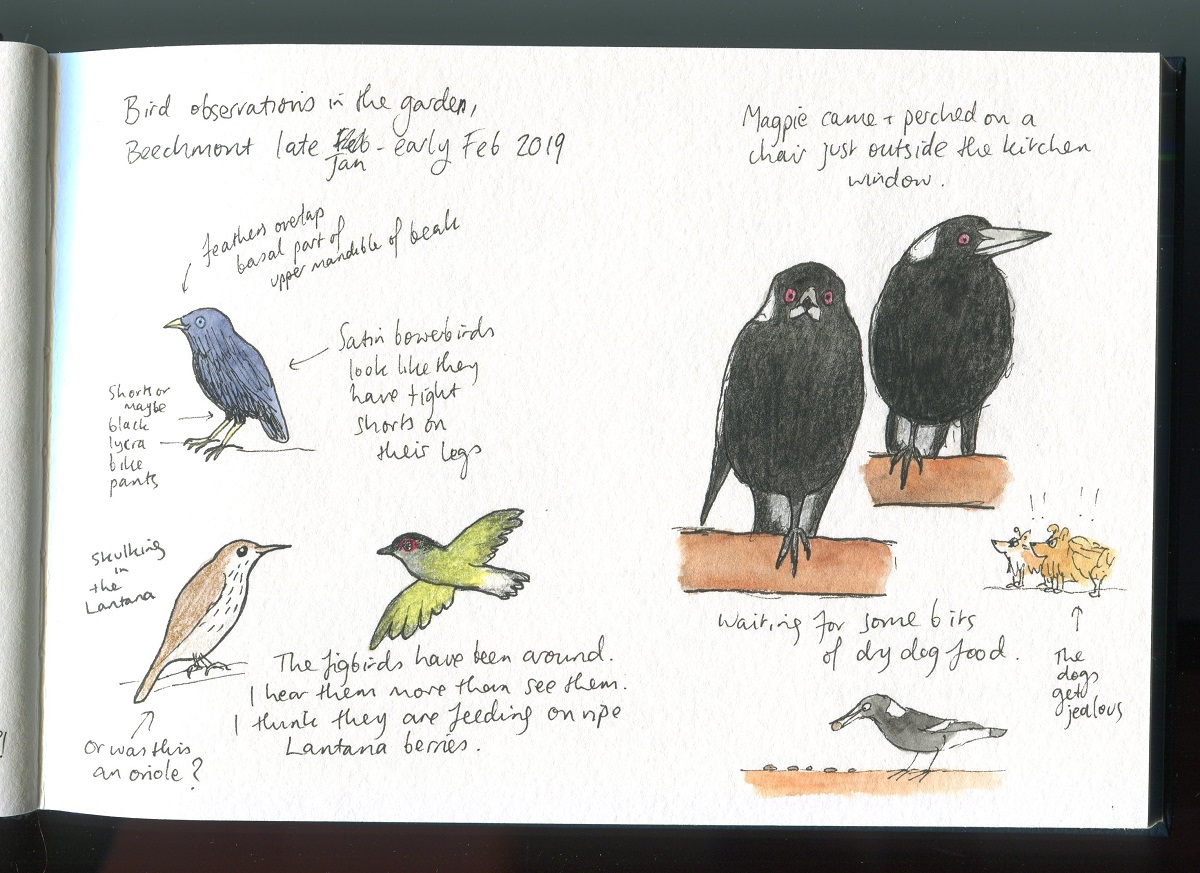 Bird observations in the garden,
Beechmont late Feb - early Feb 2019
Jan
feathers overlap
basal part of
upper mandible of beak
Satin bowerbirds
look like they
have tight
shorts on
their legs
Shorts or
maybe
black
lycra
bike
pants
Skulking
in
the
Lantana
Or was this
an oriole?
The figbirds have been around.
I hear them more than see them.
I think they are feeding on ripe
Lantana berries.
Magpie came + perched on a
chair just outside the kitchen
window.
!! !!
waiting for some bits
of dry dog food.
The
dogs
get
jealous